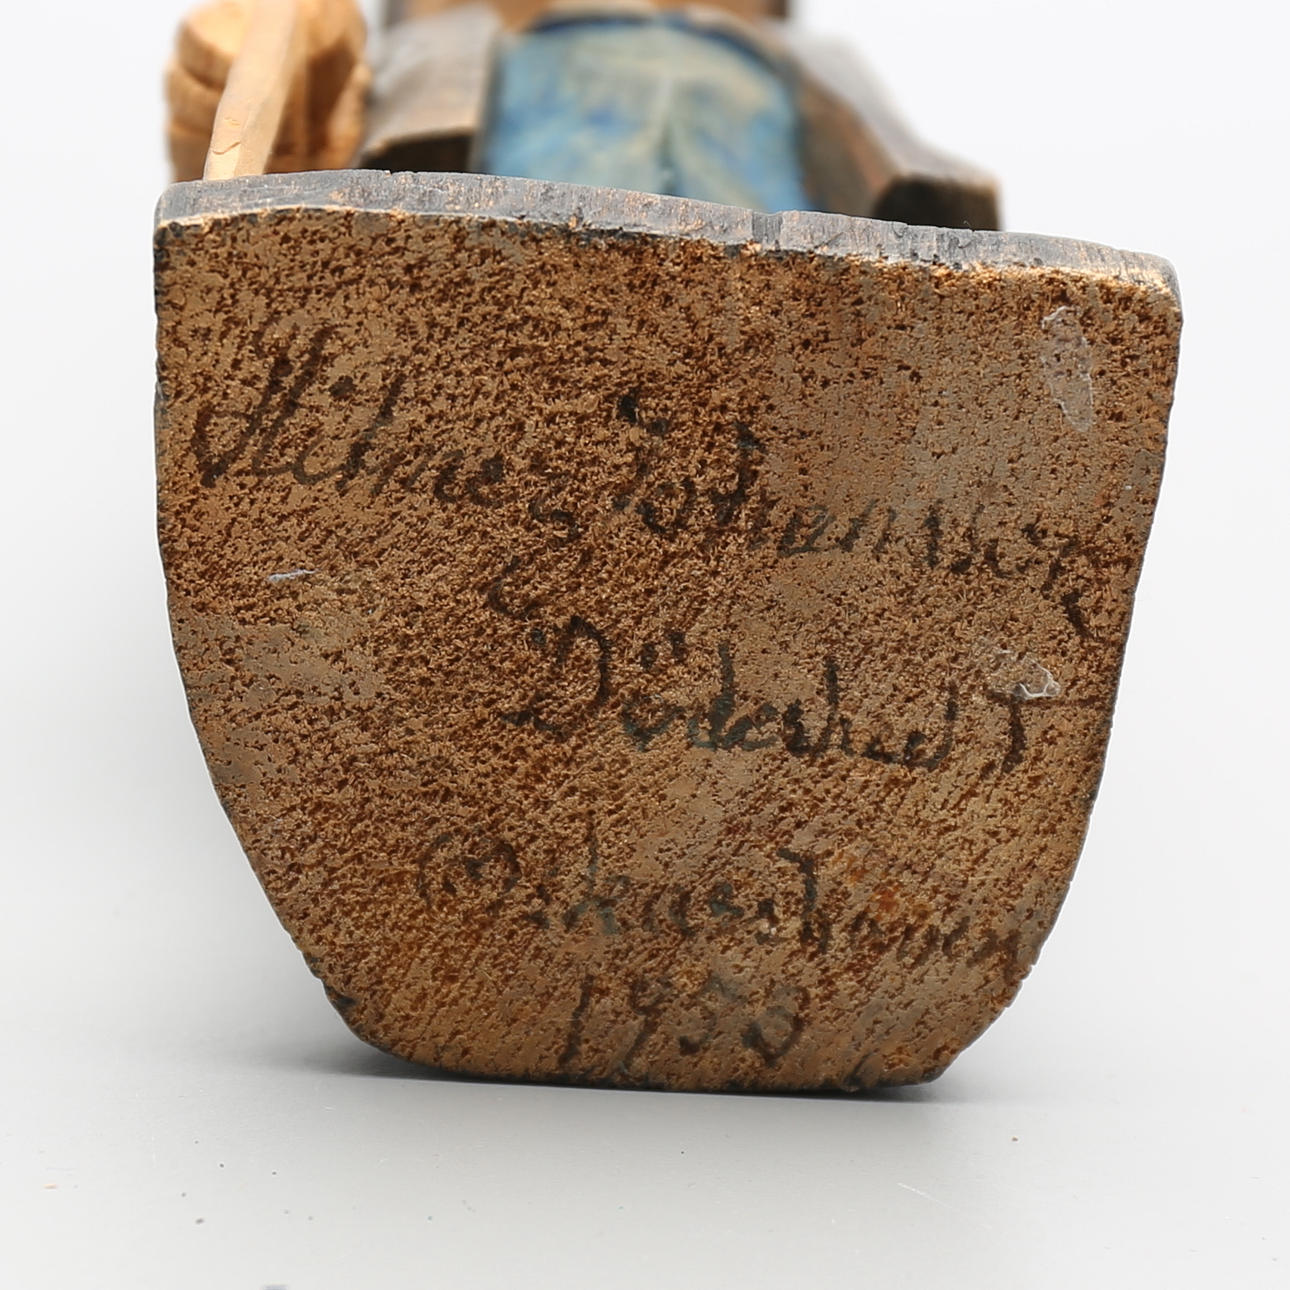 Hilmer Johansson
Döderhult
Oskarshamn
1930